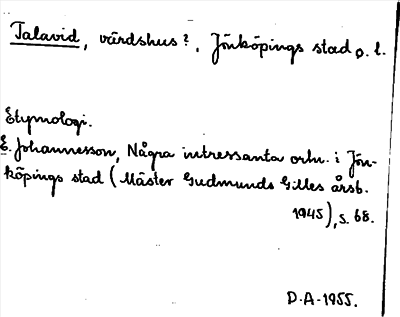 Talavid, värdshus?, Jönköpings stad o. l.
Etymologi.
E. Johannesson, Några intressanta ortn. i Jön-
köpings stad (Mäster Gudmunds Gilles årsb.
1945), s. 68.
D.A-1955.